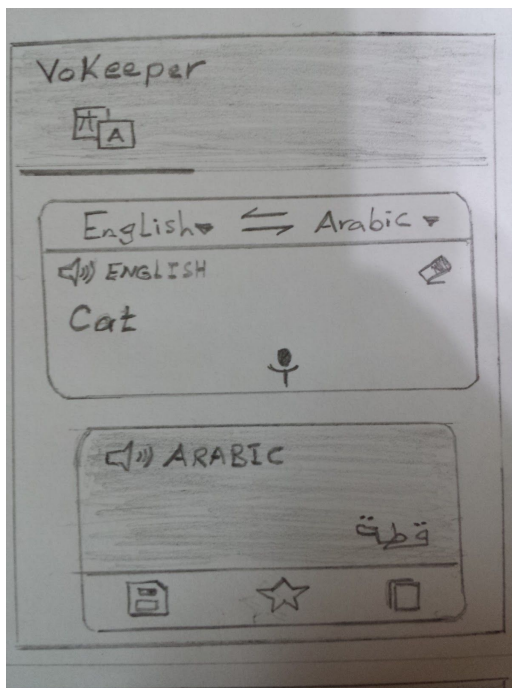 VoKeeper
A
English Arabic
ENGLISH
Cat
ARABIC
قطة